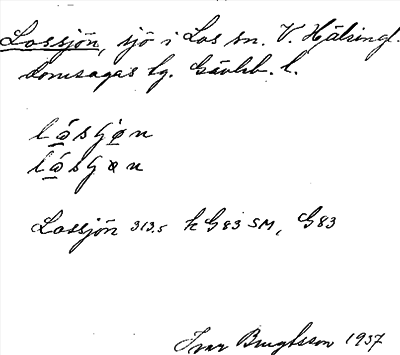 Lossjön, sjö i Los sn. V. Hälsingl.
domsagas tg. Gävleb. l.
Lossjön 313.5 k G83 SM, G83
Ivar Bengtsson 1937